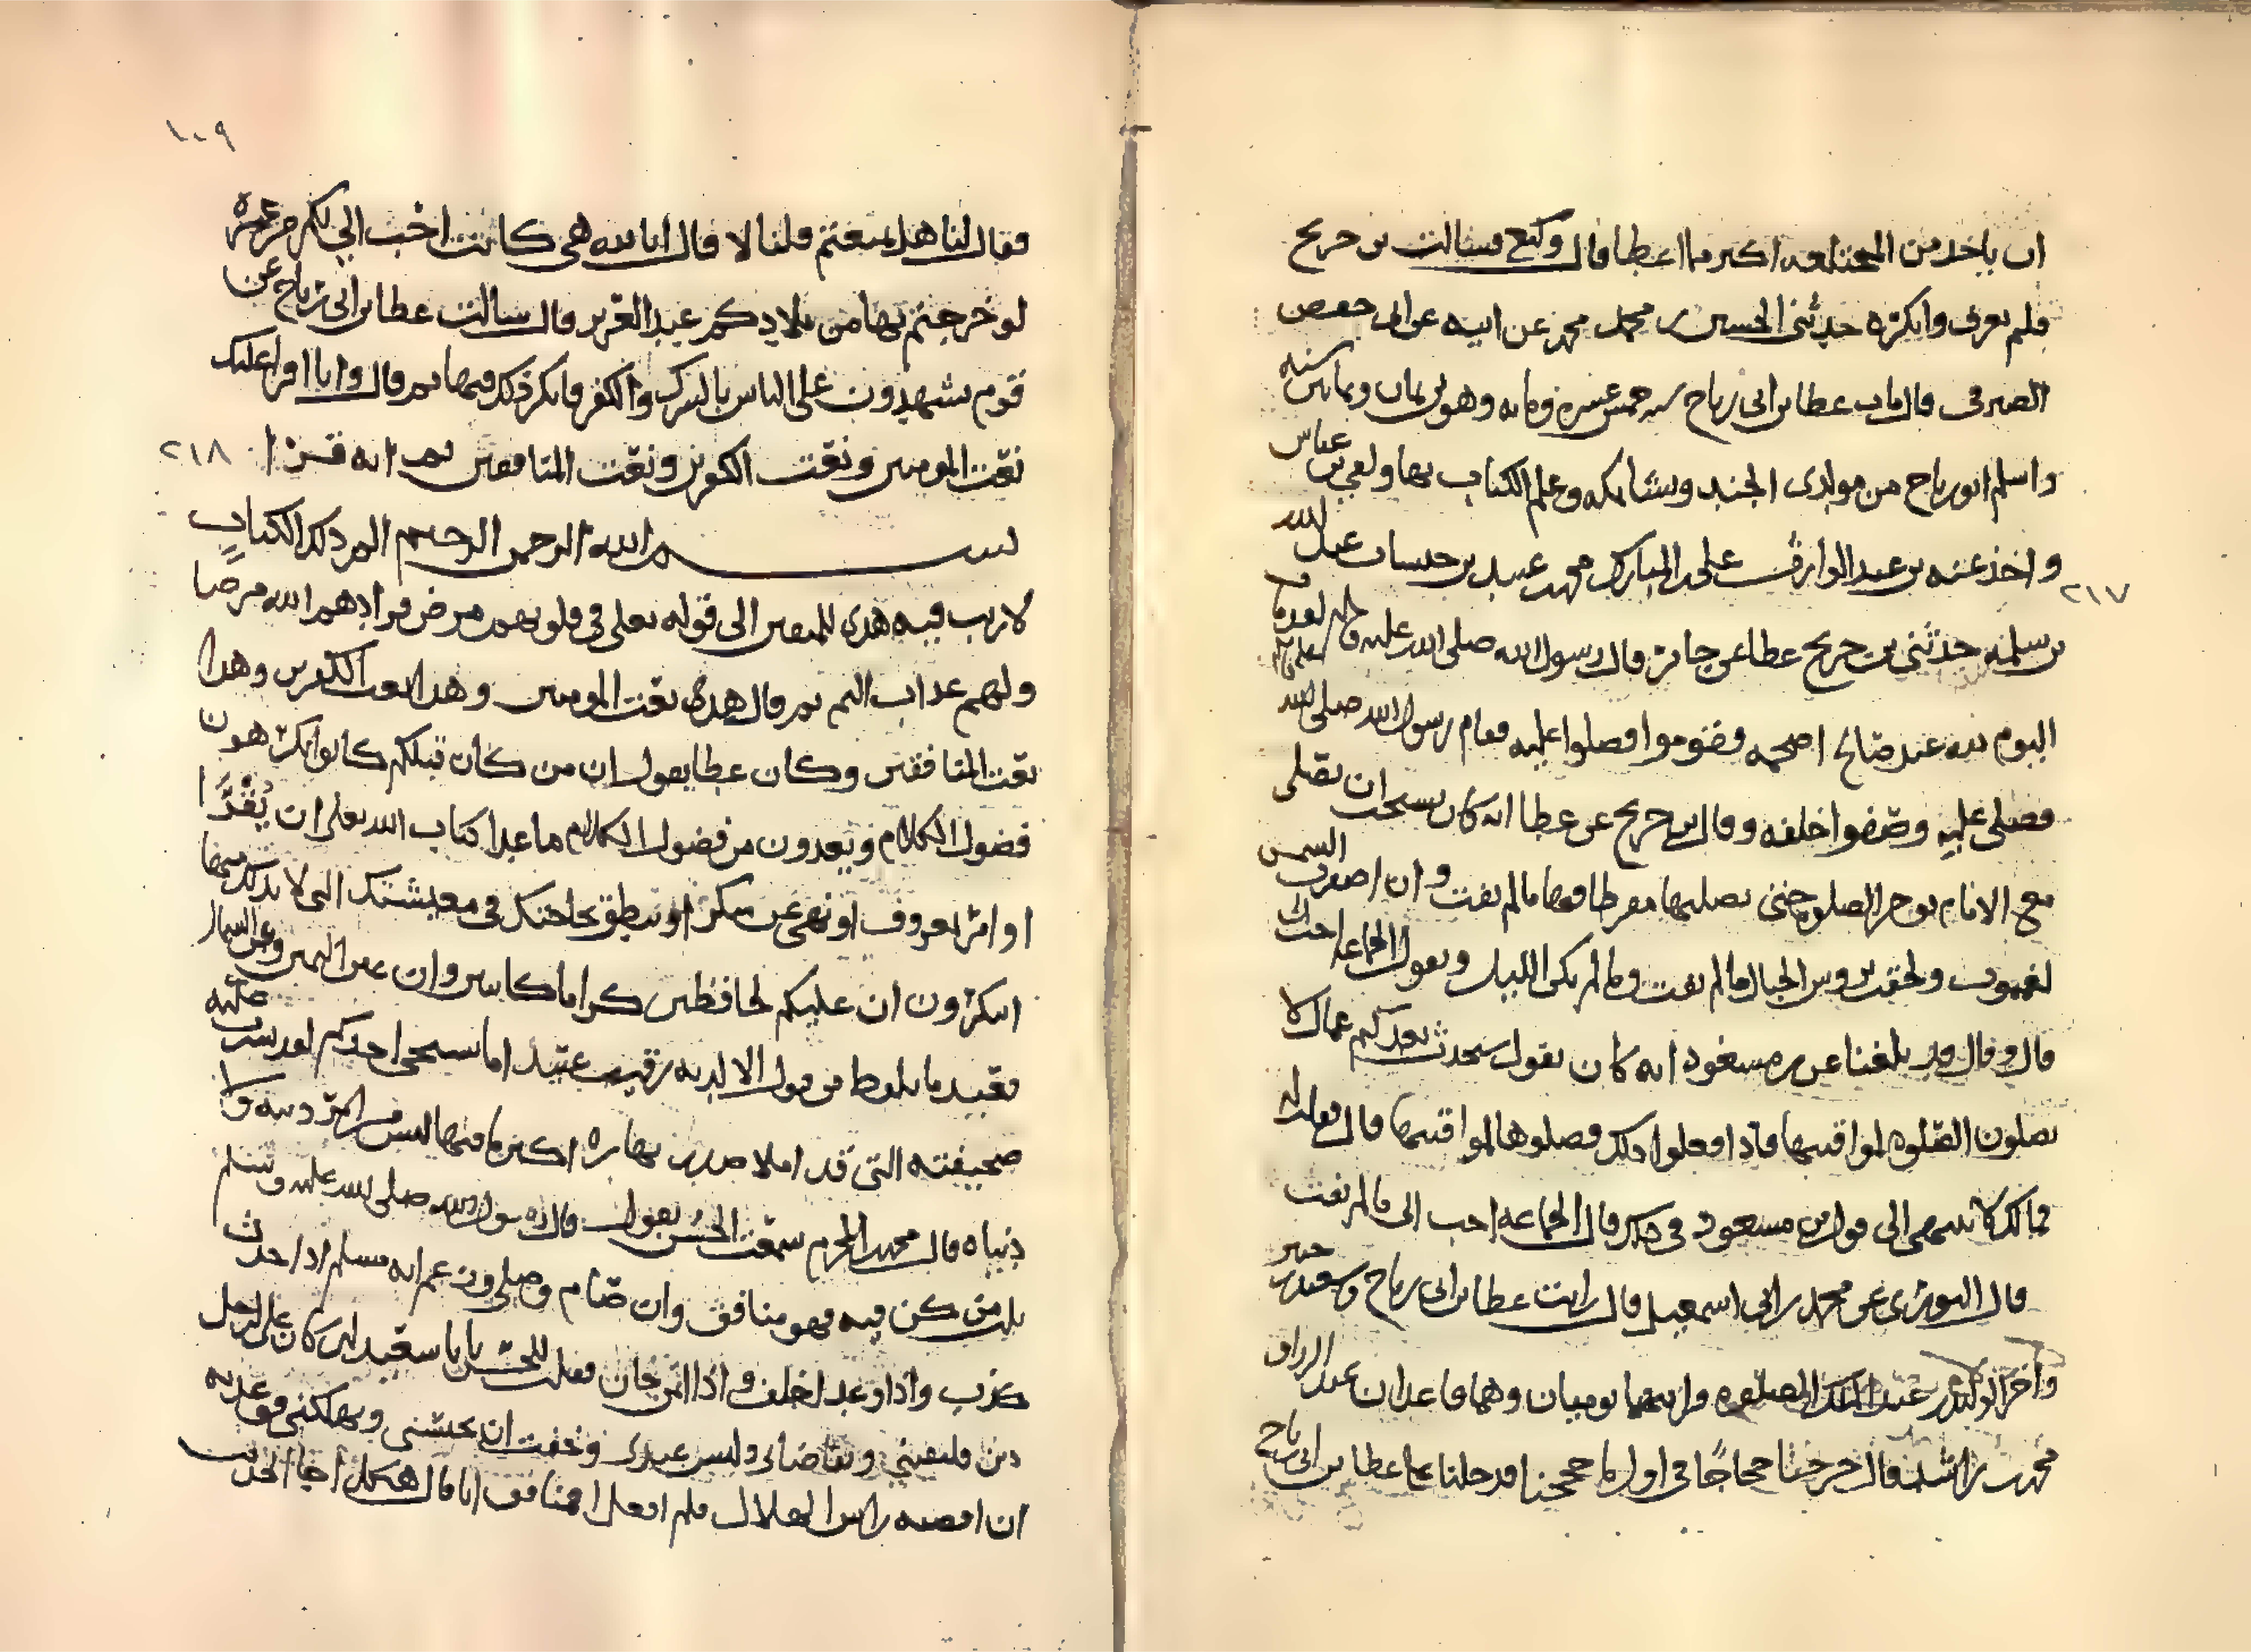 ان ياخذ من المختلعه اكثر مما اعطا قال وكيع فسالت بن جريح
فلم يعرف وانكره حدثنى الحسين بن محمد بن محمد عن ابيه عن ابى حفص
الصيرفى قال مات عطا بن ابى رباح سنه خمس عشره ومايه وهو بن ثمان وثمانين سنه
واسلم ابو رباح من مولدى الجند ونشا بمكه وعلم الكتاب بها ولقى بن عباس
واخذ عنه بن عبد الوارث على بن المبارك محمد بن عبيد بن حساب عبد الله
بن سلمه حدثنى بن جريح عطا عن جابر قال رسول الله صلى الله عليه
اليوم لله عبد صالح اصحمه فقوموا فصلوا عليه فقام رسول الله صلى الله
فصلى عليه وصفوا خلفه وقال بن جريح عن عطا انه كان يستحب ان تصلى
مع الامام يوخر الصلوه حتى يصليها مفرطا فيها مالم تفت وان اصفرت الشمس
للغيوب ولحقت بروس الجبال مالم تفت ومالم يكن الليل ويقول الجماعه احب
قال وقال قد بلغنا عن بن مسعود انه كان يقول سيحدث بعدكم عمال لا
يصلون الصلوه لمواقيتها فاذا فعلوا ذلك فصلوها لمواقيتها قال فقلت له
فمالك لا تنتهى الى قول بن مسعود فى ذلك قال الجماعه احب الى مالم تفت
قال الثورى عن محمد بن ابى اسمعيل قال رايت عطا بن ابى رباح وسعيد بن جبير
واخر الوليد بن عبد الملك الصلوه فرايتهما يوميان وهما قاعدان عبد الرزاق
محمد بن راشد قال خرجنا حجاجا فى اول ما حججنا فدخلنا على عطا بن ابى رباح
٢١٧
١٠٩
فقال لنا هل سمعتم قلنا لا قال اما والله هى كانت احب الى لكم من عمره
لو خرجتم بها من بلادكم عبد العزيز قال سالت عطا بن ابى رباح عن
قوم يشهدون على الناس بالشرك والكفر فانكر ذلك فيها ثم قال وانا اقرا عليك
نعت المومنين ونعت الكفرين ونعت المنافقين ثم انه قرا
٢١٨
بسم الله الرحمن الرحيم الم ذلك الكتاب
لا ريب فيه هدى للمتقين الى قوله تعلى فى قلوبهم مرض فزادهم الله مرضا
ولهم عذاب اليم ثم قال هذى نعت المومنين وهذا نعت الكفرين وهذا
نعت المنافقين وكان عطا يقول ان من كان قبلكم كانوا يكرهون
فضول الكلام ويعدون من فضول الكلام ما عدا كتاب الله تعلى ان يُقرا
او امر بمعروف او نهى عن منكر او تنطق بحاجتك فى معيشتك التى لا بد لك منها
اتنكرون ان عليكم لحافظين كراما كاتبين وان عن اليمين وعن الشمال
قعيد ما يلفظ من قول الا لديه رقيب عتيد اما يستحى احدكم لو نشرت عليه
صحيفته التى قد املا صدر نهاره اكثر ما فيها ليس من امر دينه ولا
دنياه قال محمد المحرم سمعت الحسن يقول قال رسول الله صلى الله عليه وسلم
ثلث من كن فيه فهو منافق وان صام وصلى وزعم انه مسلم اذا حدث
كذب واذا وعد اخلف واذا ائتمن خان فقلت للحسن يابا سعيد لئن كان على لرجل
دين فلقينى وتقاضانى وليس عندى وخفت ان يحبسنى ويهلكنى فوعدته
ان اقضيه راس الهلال فلم افعل امنافق انا قال هكذا جا الحديث